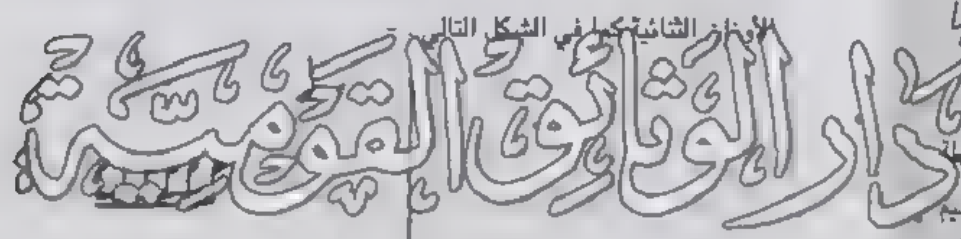 الأوزان الثنائية كما في الشكل التالي
دار الوثائق القومية